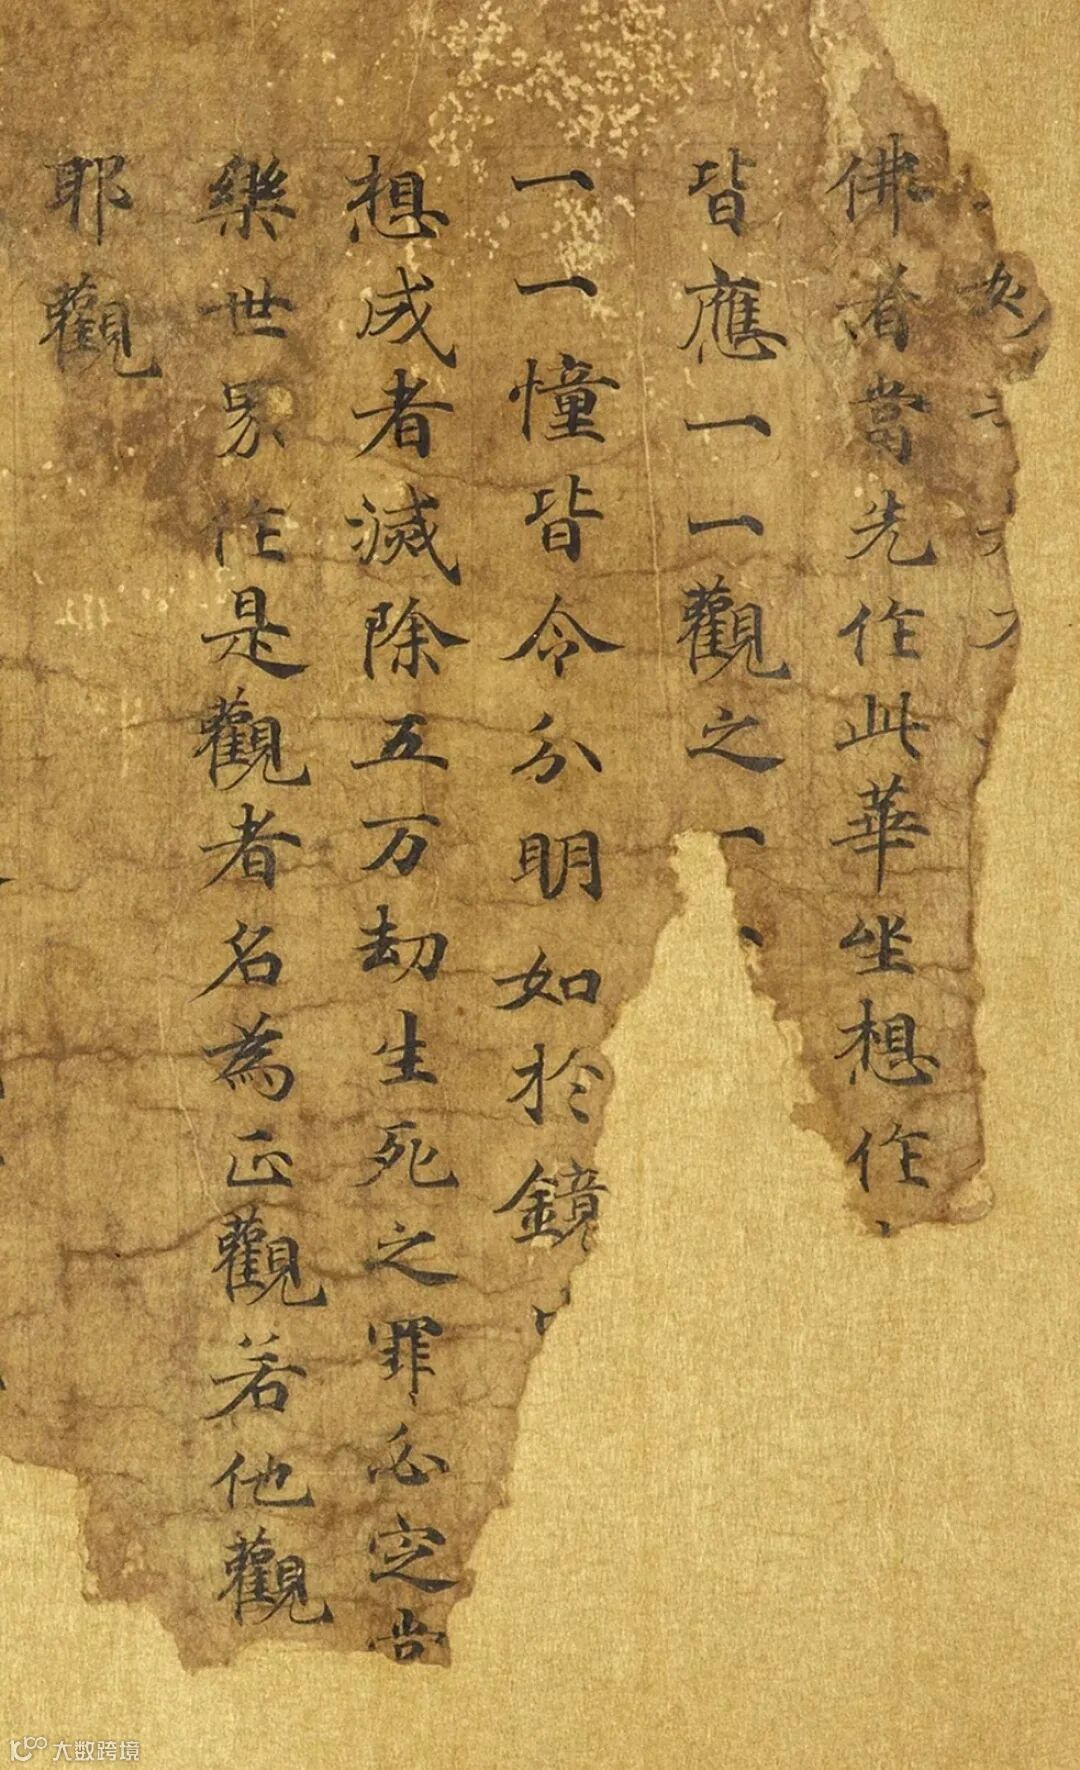 佛者當先作此華坐想作
皆應一一觀之一
一一憧皆令分明如於鏡
想成者滅除五万劫生死之罪必定
樂世界作是觀者名為正觀若他觀
耶觀
大数跨境